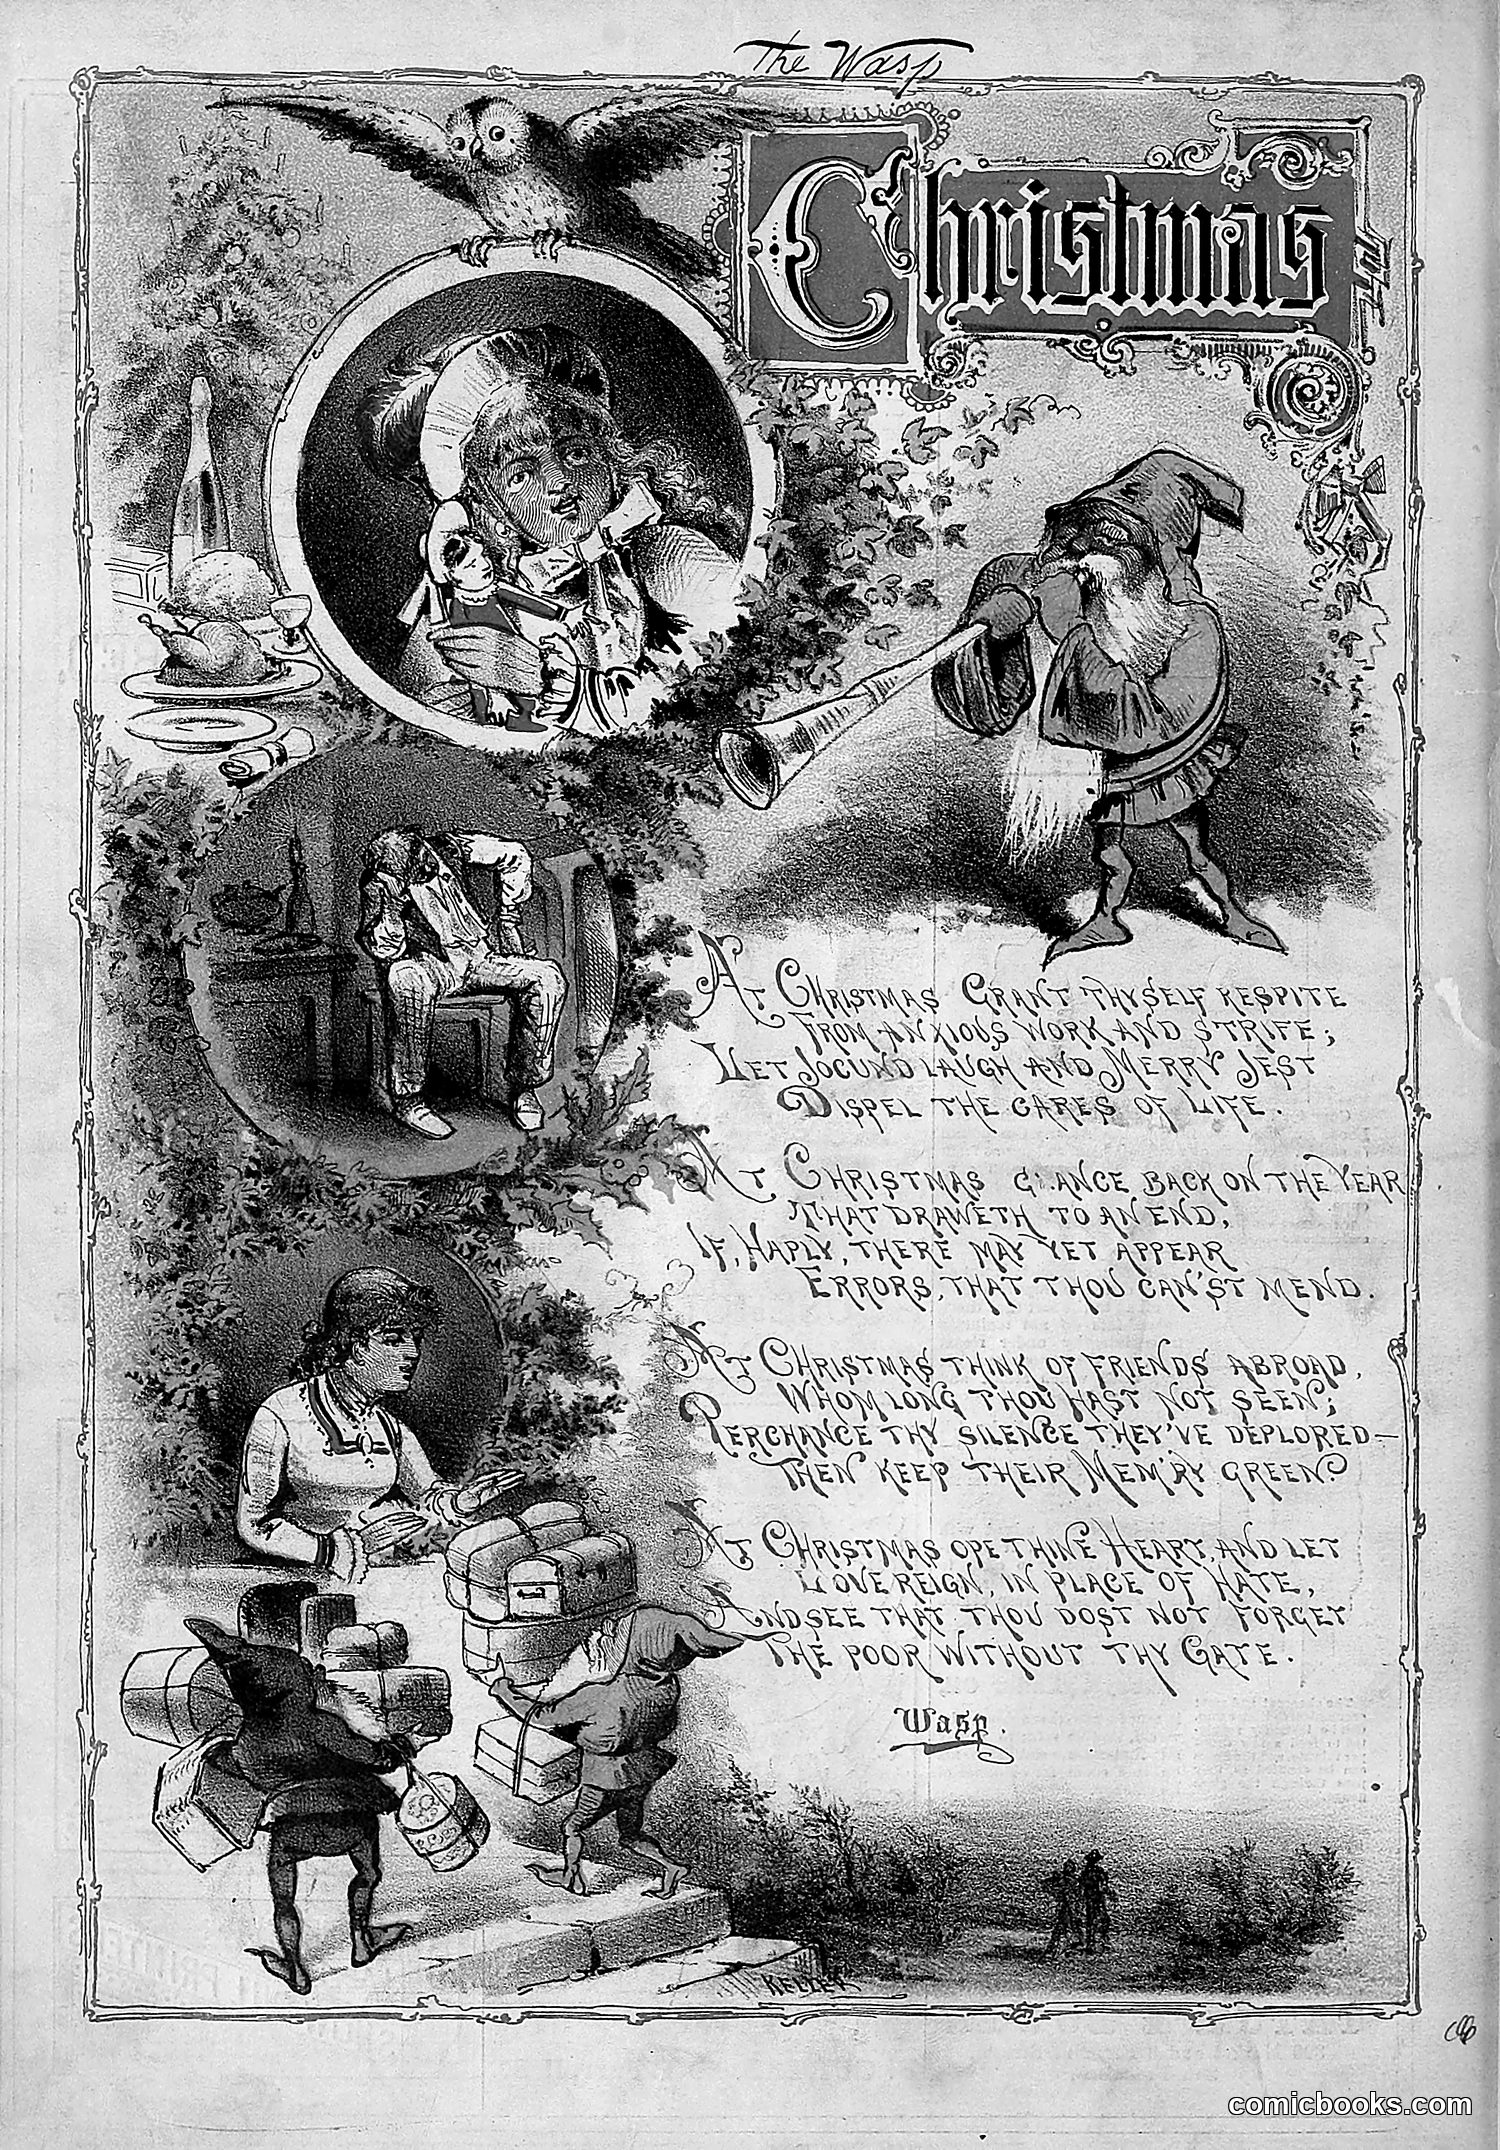 The Wasp
Christmas
At Christmas Grant thyself respite
From anxious work and strife;
Let Jocund laugh and Merry Jest
Dispel the cares of life.
At Christmas glance back on the Year
That draweth to an end,
If, Haply, there may yet appear
Errors, that thou can'st mend.
At Christmas think of friends abroad,
Whom long thou hast not seen;
Perchance thy silence they've deplored—
Then keep their Mem'ry green.
At Christmas ope thine Heart, and let
Love reign, in place of hate,
And see that thou dost not forget
The poor without thy Gate.
Wasp.
KELLER
comicbooks.com